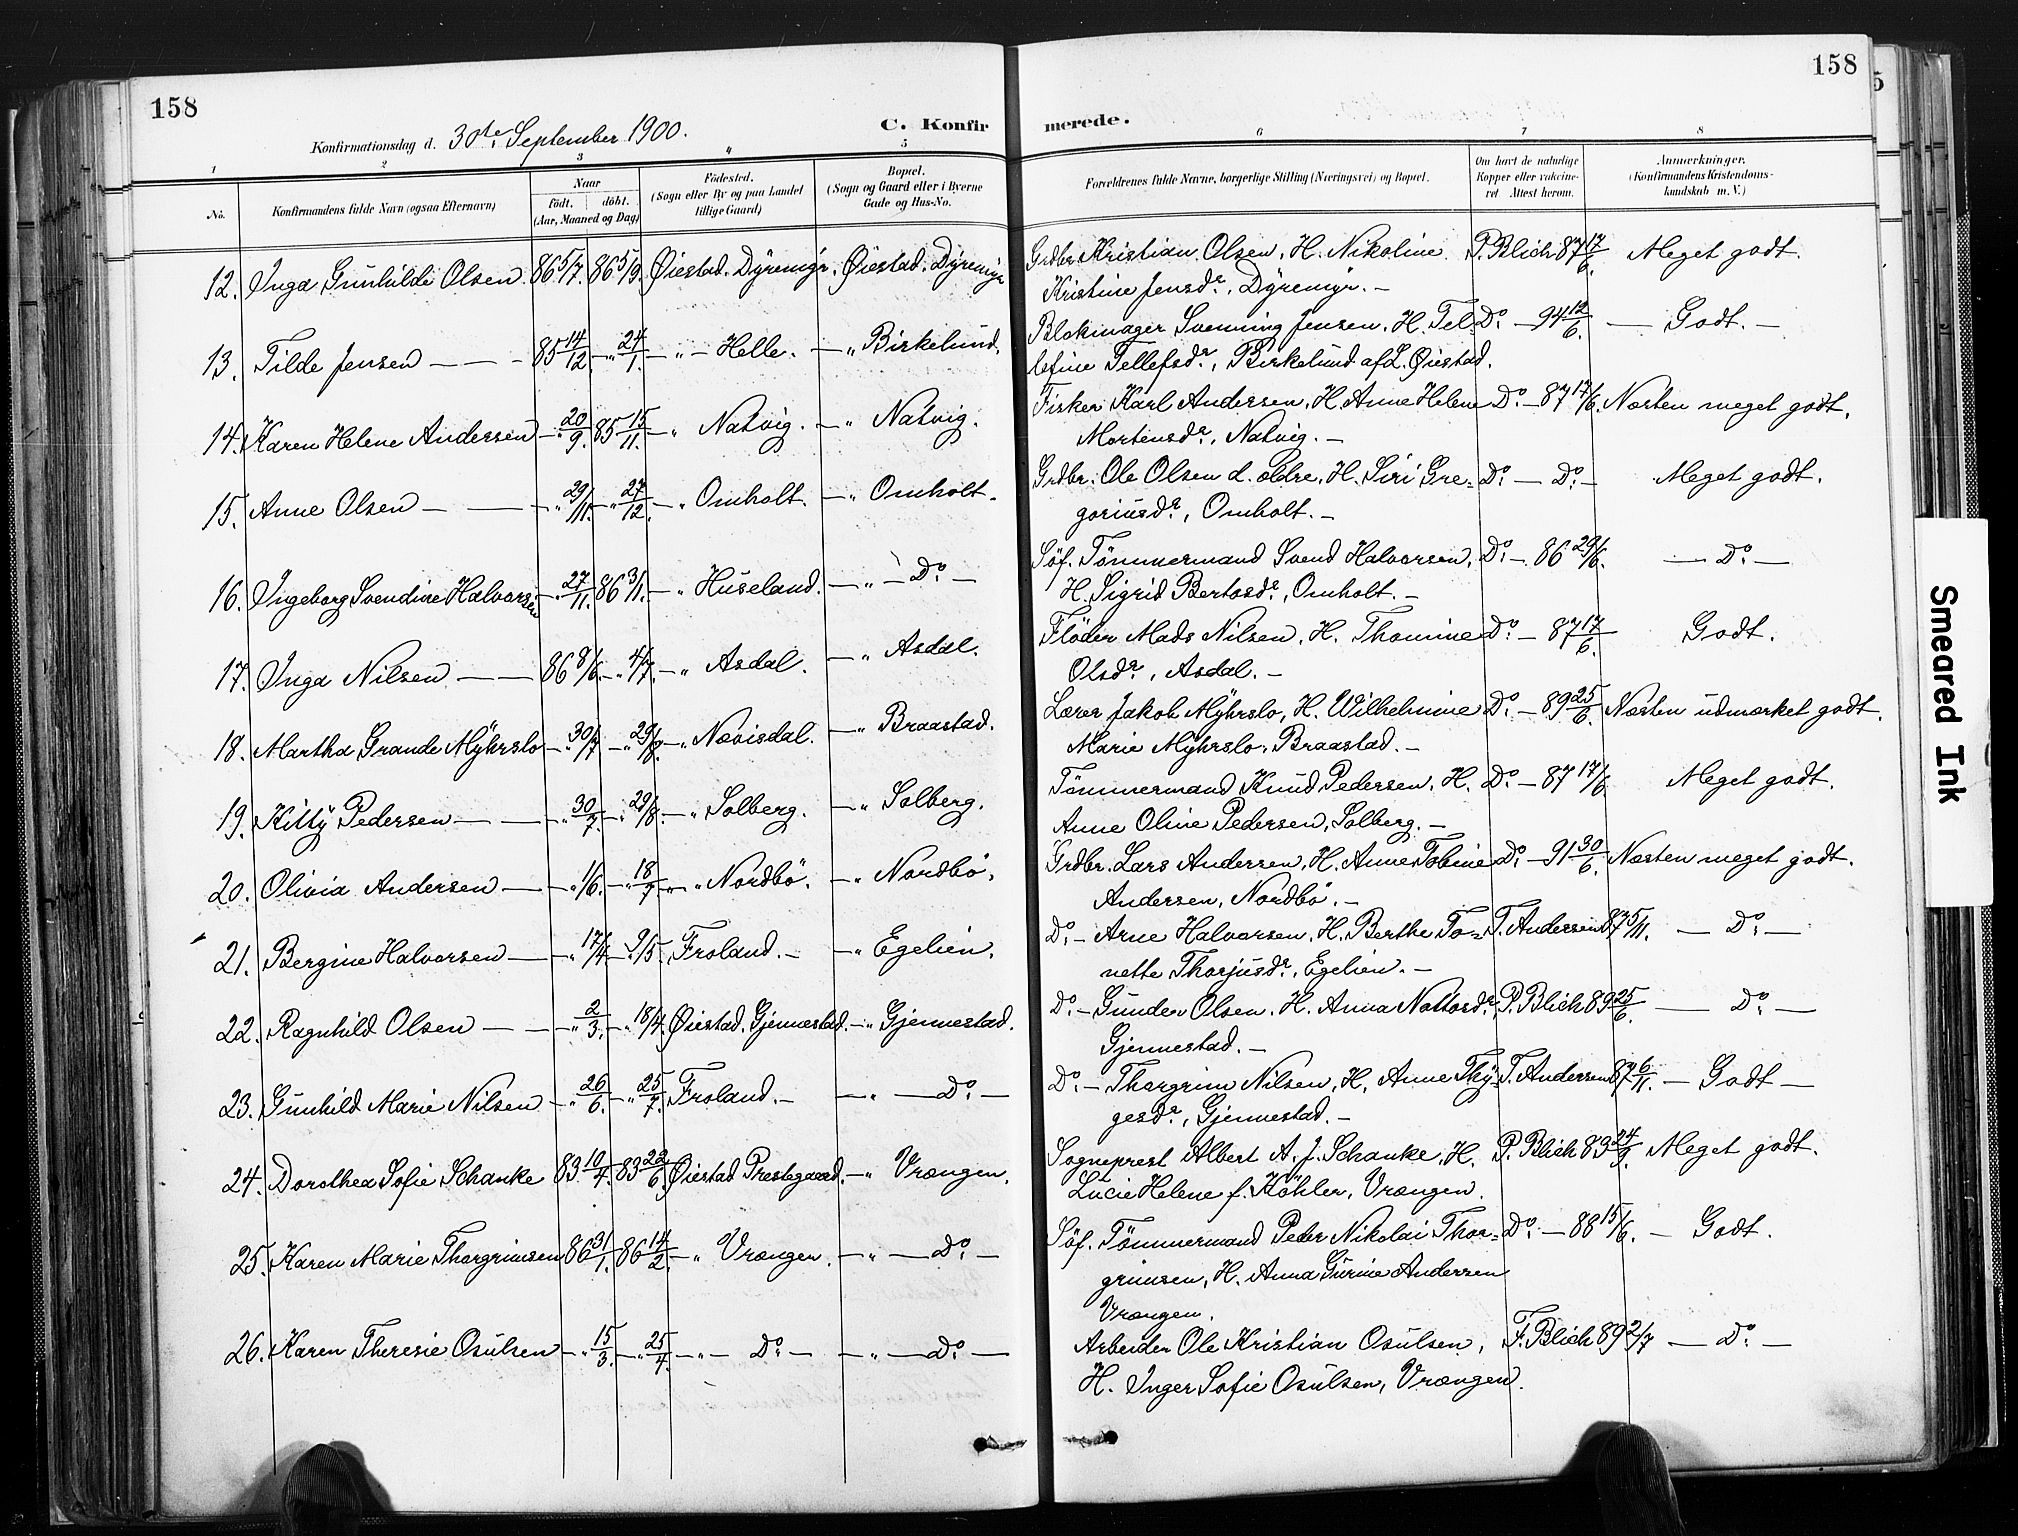 158
158
Konfirmationsdag d. 30te September 1900.
C. Konfirmerede.
1 2 3 4 5 6 7 8
No.
Konfirmandens fulde Navn (ogsaa Efternavn)
Naar
født. døbt.
(Aar, Maaned og Dag)
Fødested.
(Sogn eller By og paa Landet
tillige Gaard)
Bopæl.
(Sogn og Gaard eller i Byerne
Gade og Hus-No.
Forældrenes fulde Navne, borgerlige Stilling (Næringsvei) og Bopæl.
Om havt de naturlige
Kopper eller vaccineret
Attest herom.
Anmærkninger.
(Konfirmandens Kristendomskundskab
m. V.)
12. Inga Gunhilde Olsen 86 5/7. 86 5/9. Øiestad. Dÿremÿr. Øiestad. Dÿremÿr Grdbr. Kristian Olsen. H. Nikoline P. Blich 87 17/6. Meget godt.
Kristine Jensdr., Dÿremÿr. —
13. Tilde Jensen — — 85 14/12. — " 24/1. — " — Helle. — " Birkelund. Blokmager Svenning Jensen. H. Tel- Do. — 94 12/6. — Godt. —
lefine Tellefsdr., Birkelund af L. Øiestad.
14. Karen Helene Andersen — " 20/9. 85 15/11. — " Natvig. — " Natvig. Fisker Karl Andersen. H. Anne Helene Do. — 87 17/6. Næsten meget godt.
Mortensdr., Natvig. —
15. Anne Olsen — — — " 29/11. — " 27/12. — " Omholt. — " Omholt. Grdbr. Ole Olsen d. ældre, H. Siri Gre- Do. — Do. — Meget godt.
goriusdr., Omholt. —
16. Ingeborg Svendine Halvorsen — " 27/11. 86 3/1. — " Huseland. — " — Do. — Søf. Tømmermand Svend Halvorsen, Do. — 86 29/6. — Do. —
H. Sigrid Bertosdr., Omholt. —
17. Inga Nilsen — — 86 8/6. — " 4/7. — " Asdal. — " Asdal. Fløder Mads Nilsen, H. Thomine Do. — 87 17/6. Godt.
Olsdr., Asdal. —
18. Martha Grande Mÿhrslo — " 30/7 — " 29/8. — " Nævisdal. — " Braastad. Lærer Jakob Mÿhrslo, H. Wilhelmine Do. — 89 25/6. Næsten udmærket godt.
Marie Mÿhrslo, Braastad. —
19. Kitty Pedersen — — — " 30/7. — " 29/8. — " Solberg. — " Solberg. Tømmermand Knud Pedersen, H. Do. — 87 17/6 Meget godt.
Anne Oline Pedersen, Solberg. —
20. Olivia Andersen — — " 1/6. — " 18/7. — " Nordbø. — " Nordbø. Grdbr. Lars Andersen, H. Anne Tobine Do. — 91 30/6. Næsten meget godt.
Andersen, Nordbø. —
21. Bergine Halvorsen — — " 17/4. — " 9/5. Froland. — — " Egelien. Do. — Arne Halvorsen. H. Berthe To- T. Andersen 87 5/11. — Do. —
nette Thorjusdr., Egelien. —
22. Ragnhild Olsen — — " 2/3. — " 18/4. Øiestad. Gjennestad. — " Gjennestad. Do. — Gunder Olsen. H. Anna Nottosdr. P. Blich 89 25/6. — Do. —
Gjennestad. —
23. Gunhild Marie Nilsen — " 26/6. — " 25/7. Froland. — — " — Do. — Do. — Thorgrim Nilsen, H. Anne Thÿ- T. Andersen 87 6/11. — Godt —
gesdr., Gjennestad. —
24. Dorothea Sofie Schanke 83 10/4. 83 22/6. Øiestad Prestegaard. — " Vrængen. Sogneprest Albert A. J. Schanke. H. P. Blich 83 24/9. Meget godt.
Lucie Helene f. Köhler, Vrængen.
25. Karen Marie Thorgrimsen 86 31/1. 86 14/2. — " Vrængen. — " — Do. — Søf. Tømmermand Peder Nikolai Thor- Do. — 88 15/6. — Godt.
grimsen, H. Anna Gurine Andersen
Vrængen.
26. Karen Theresie Osulsen — " 15/3. — " 25/4. — " — Do. — — " — Do. — Arbeider Ole Kristian Osulsen, F. Blich 89 2/7 — Do. —
H. Inger Sofie Osulsen, Vrængen.
Smeared Ink
5